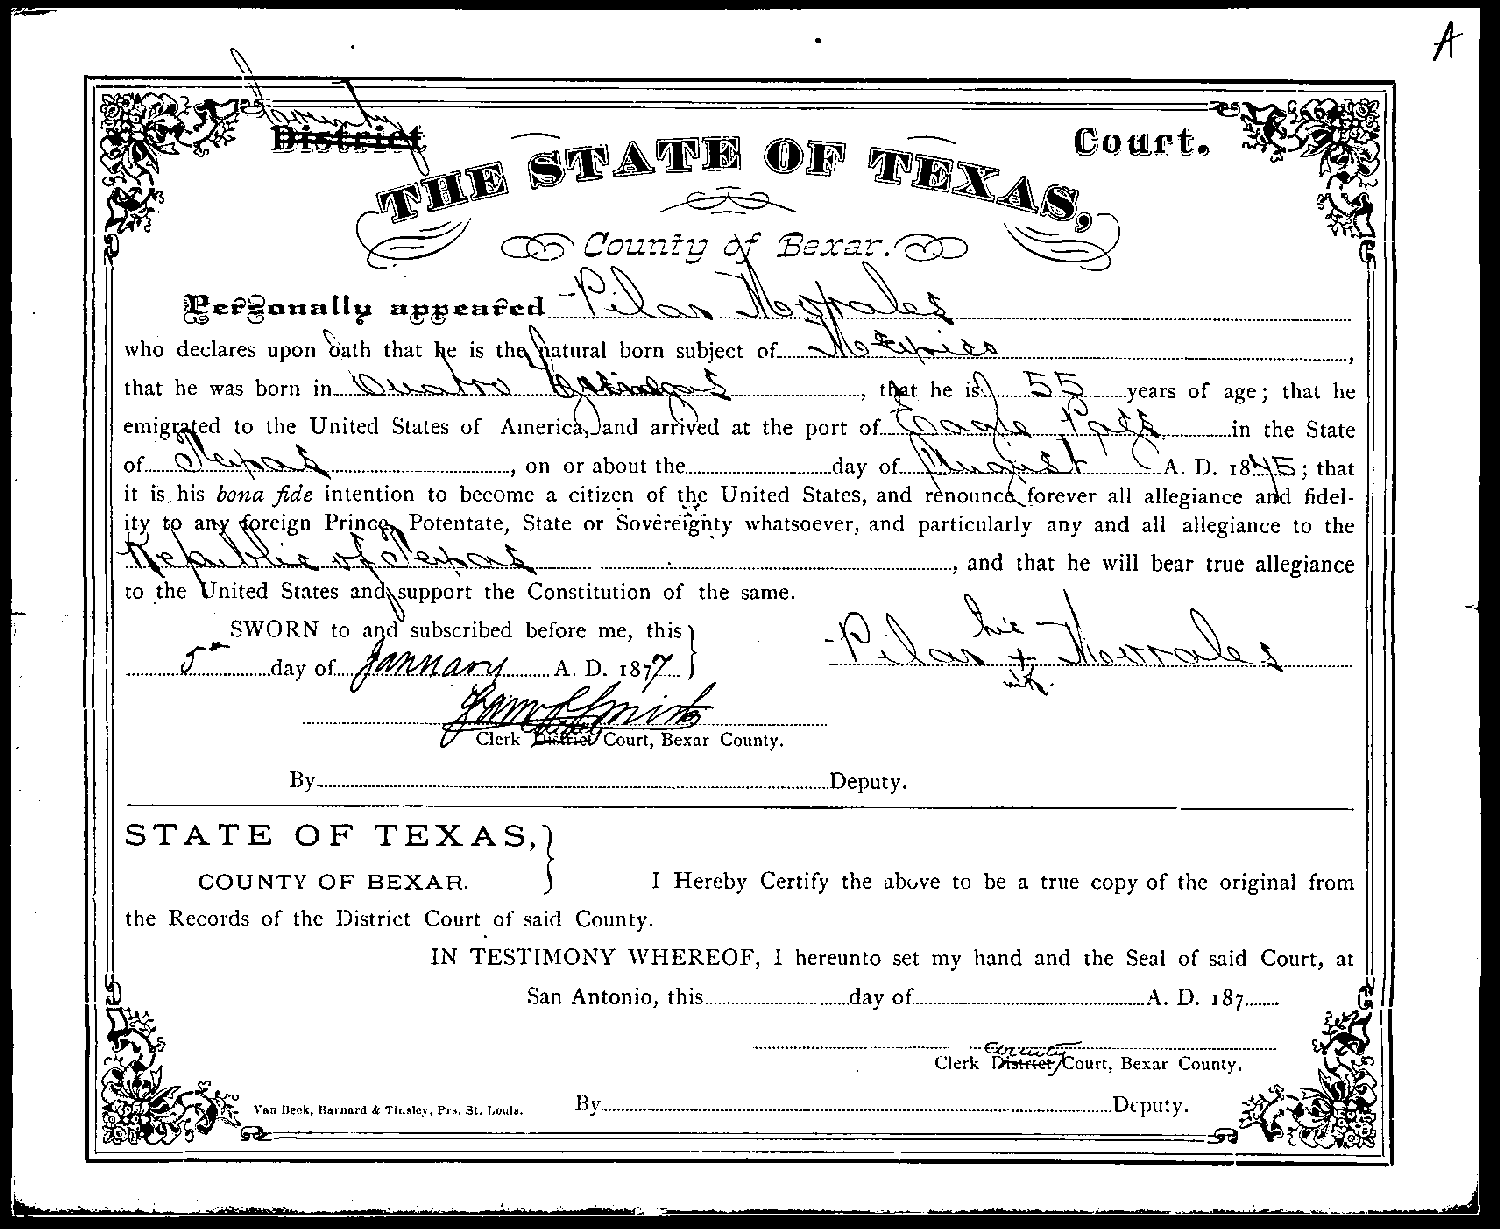 A
County
District Court.
THE STATE OF TEXAS,
County of Bexar.
Personally appeared Pilar Morales
who declares upon oath that he is the natural born subject of Mexico
that he was born in Cuatro Cienegas, that he is 55 years of age; that he
emigrated to the United States of America, and arrived at the port of Eagle Pass in the State
of Texas, on or about the day of August A. D. 1845; that
it is his bona fide intention to become a citizen of the United States, and renounce forever all allegiance and fidel-
ity to any foreign Prince, Potentate, State or Sovereignty whatsoever, and particularly any and all allegiance to the
Republic of Texas, and that he will bear true allegiance
to the United States and support the Constitution of the same.
SWORN to and subscribed before me, this
5th day of January A. D. 1877
his
Pilar + Morales
mk.
Sam S Smith
Clerk District County Court, Bexar County.
By Deputy.
STATE OF TEXAS,
COUNTY OF BEXAR. I Hereby Certify the above to be a true copy of the original from
the Records of the District Court of said County.
IN TESTIMONY WHEREOF, I hereunto set my hand and the Seal of said Court, at
San Antonio, this day of A. D. 187
County
Clerk District Court, Bexar County.
Van Beek, Barnard & Tinsley, Prs. St. Louis. By Deputy.